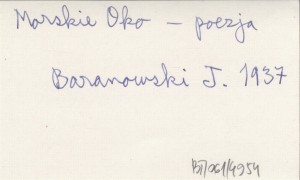 Morskie Oko – poezja
Baranowski J. 1937
BJ/061/4954